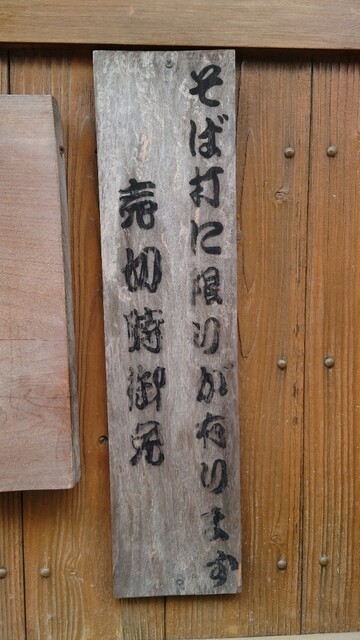 そば打に限りが有ります
売切時御免